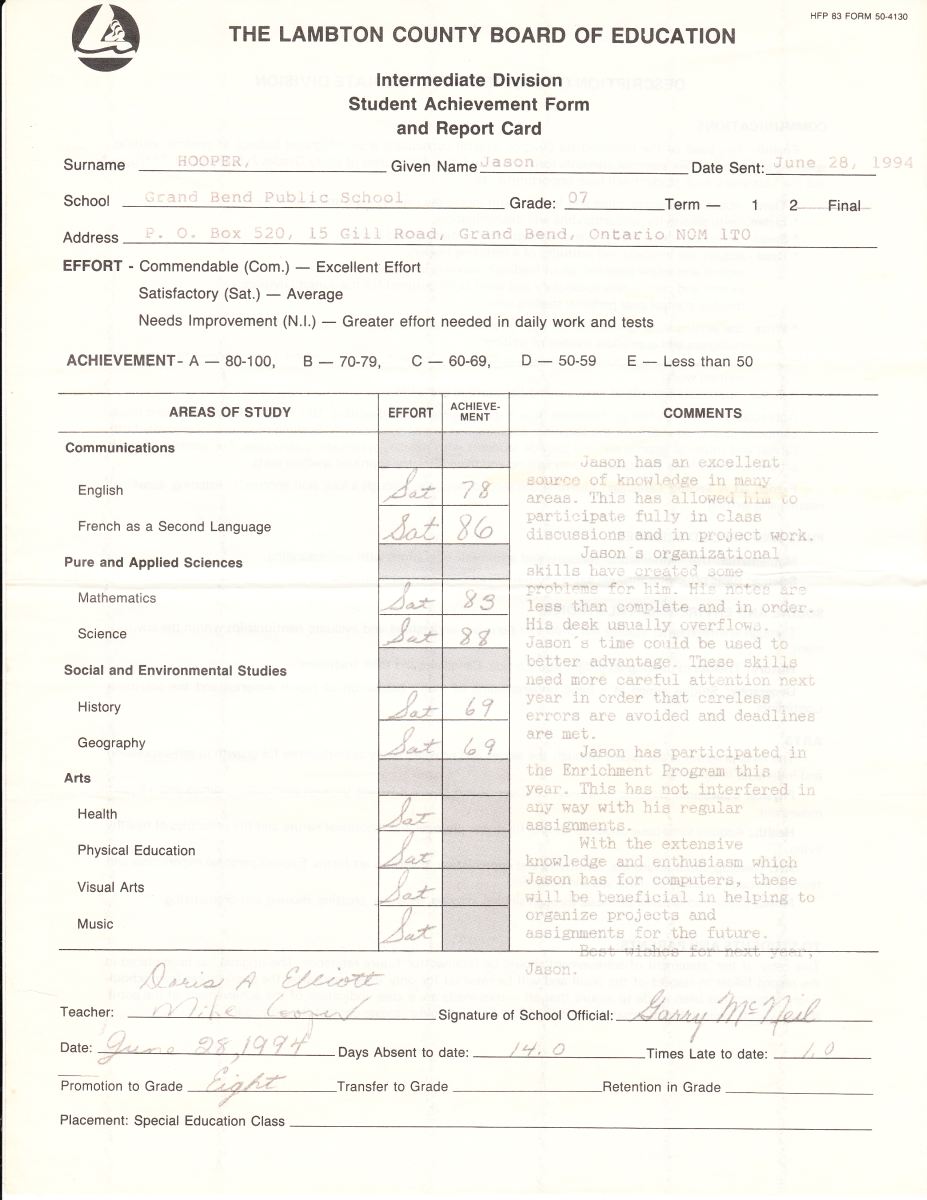 HFP 83 FORM 50-4130
THE LAMBTON COUNTY BOARD OF EDUCATION
Intermediate Division
Student Achievement Form
and Report Card
Surname HOOPER, Given Name Jason Date Sent: June 28, 1994
School Grand Bend Public School Grade: 07 Term — 1 2 Final
Address P. O. Box 520, 15 Gill Road, Grand Bend, Ontario NOM 1TO
EFFORT - Commendable (Com.) — Excellent Effort
Satisfactory (Sat.) — Average
Needs Improvement (N.I.) — Greater effort needed in daily work and tests
ACHIEVEMENT- A — 80-100, B — 70-79, C — 60-69, D — 50-59 E — Less than 50
AREAS OF STUDY EFFORT ACHIEVE-
MENT COMMENTS
Communications
English Sat 78
French as a Second Language Sat 86
Pure and Applied Sciences
Mathematics Sat 83
Science Sat 88
Social and Environmental Studies
History Sat 69
Geography Sat 69
Arts
Health Sat
Physical Education Sat
Visual Arts Sat
Music Sat
Jason has an excellent
source of knowledge in many
areas. This has allowed him to
participate fully in class
discussions and in project work.
Jason's organizational
skills have created some
problems for him. His notes are
less than complete and in order.
His desk usually overflows.
Jason's time could be used to
better advantage. These skills
need more careful attention next
year in order that careless
errors are avoided and deadlines
are met.
Jason has participated in
the Enrichment Program this
year. This has not interfered in
any way with his regular
assignments.
With the extensive
knowledge and enthusiasm which
Jason has for computers, these
will be beneficial in helping to
organize projects and
assignments for the future.
Best wishes for next year,
Jason.
Doris A Elliott
Teacher: Mike Cooper Signature of School Official: Garry McNeil
Date: June 28, 1994 Days Absent to date: 14.0 Times Late to date: 1.0
Promotion to Grade Eight Transfer to Grade Retention in Grade
Placement: Special Education Class